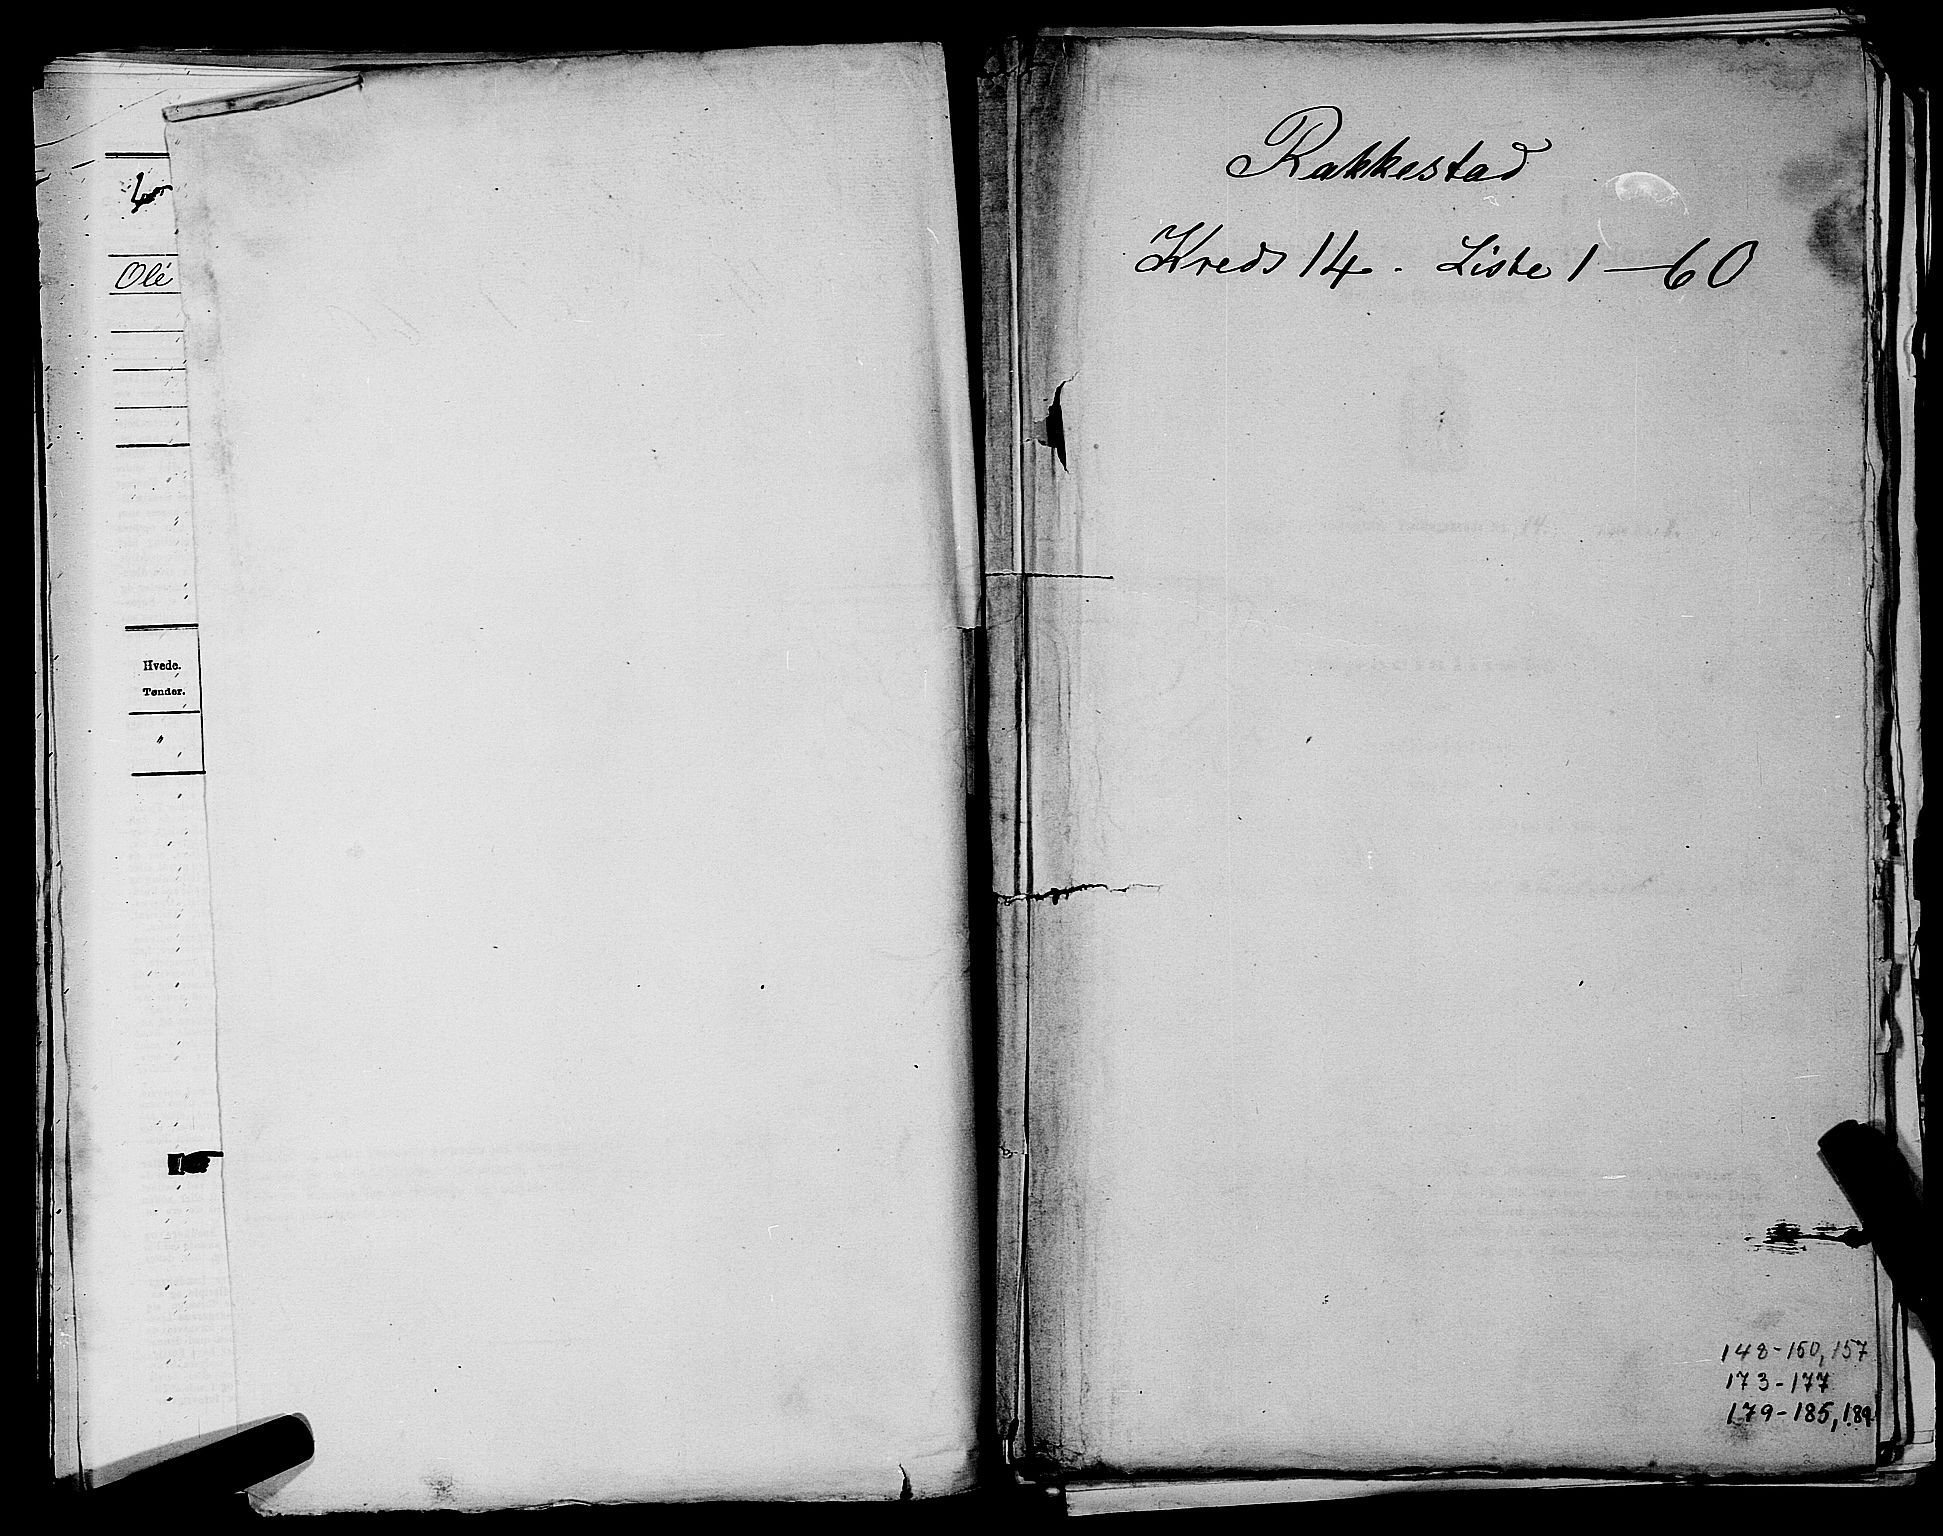 Ole
Hvede.
Tønder.
"
Rakkestad
Kreds 14. Liste 1—60
148-150, 157
173-177
179-185, 189